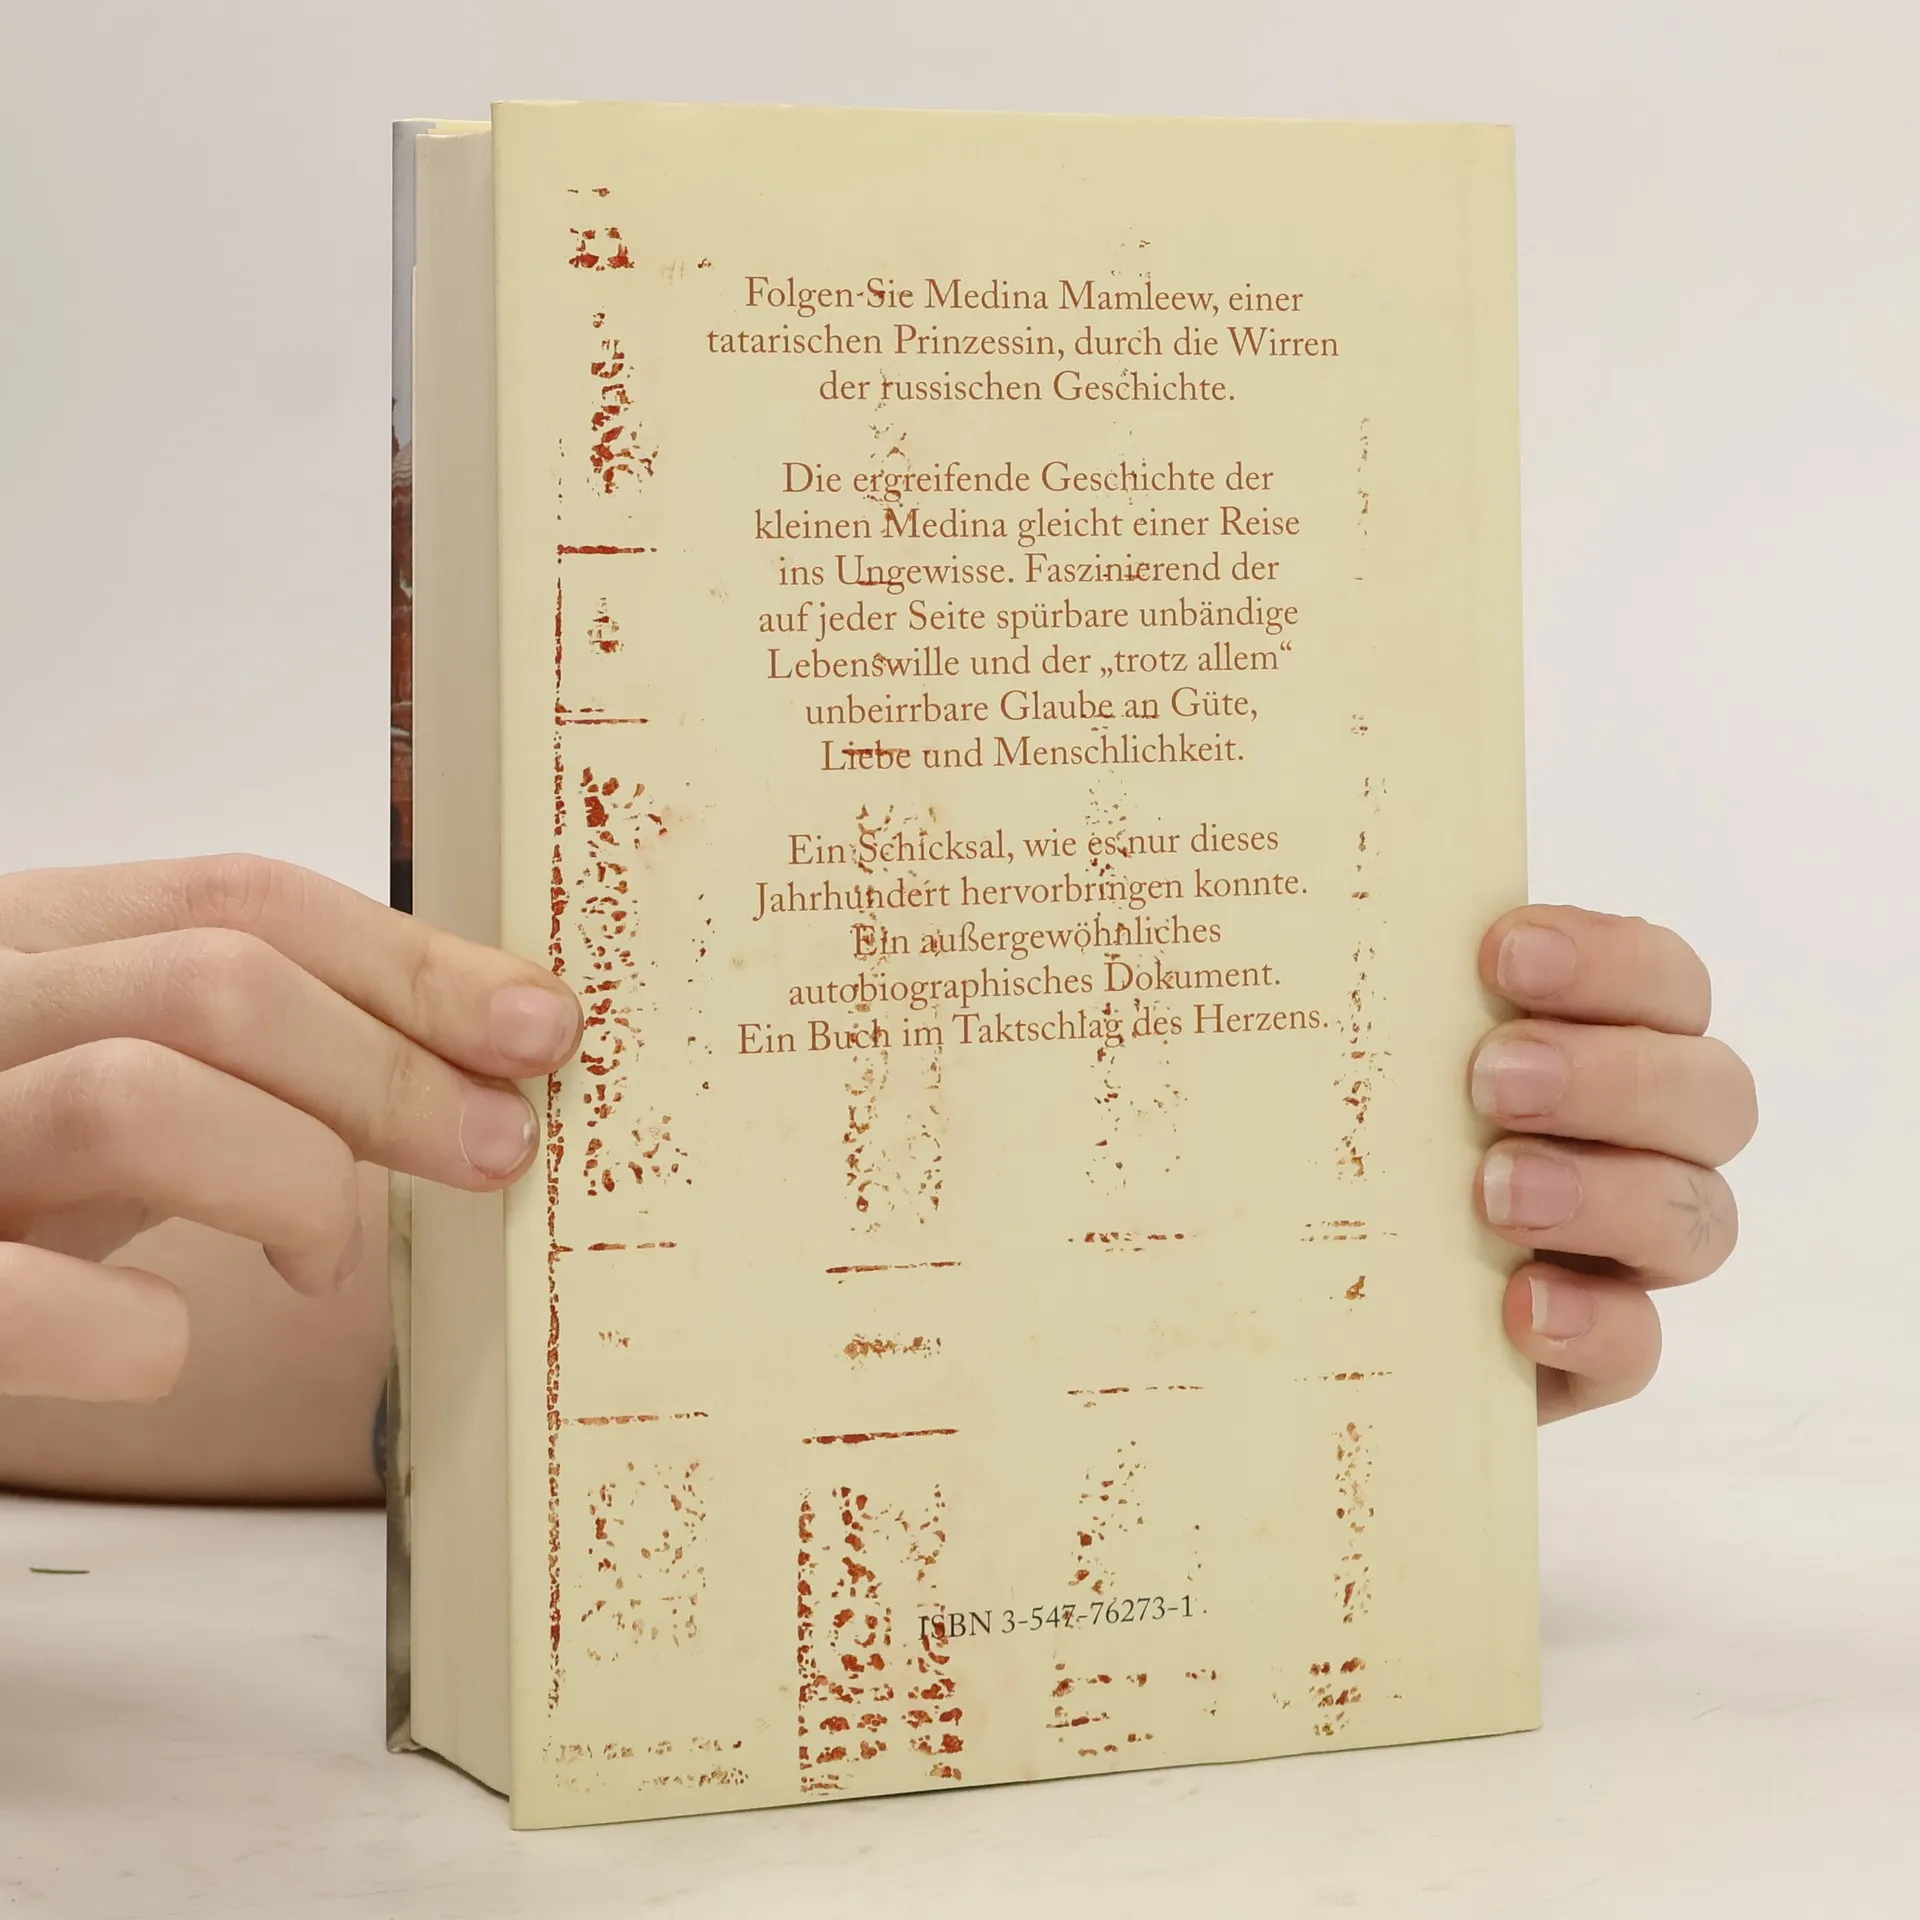 Folgen Sie Medina Mamleew, einer
tatarischen Prinzessin, durch die Wirren
der russischen Geschichte.
Die ergreifende Geschichte der
kleinen Medina gleicht einer Reise
ins Ungewisse. Faszinierend der
auf jeder Seite spürbare unbändige
Lebenswille und der „trotz allem“
unbeirrbare Glaube an Güte,
Liebe und Menschlichkeit.
Ein Schicksal, wie es nur dieses
Jahrhundert hervorbringen konnte.
Ein außergewöhnliches
autobiographisches Dokument.
Ein Buch im Taktschlag des Herzens.
ISBN 3-547-76273-1